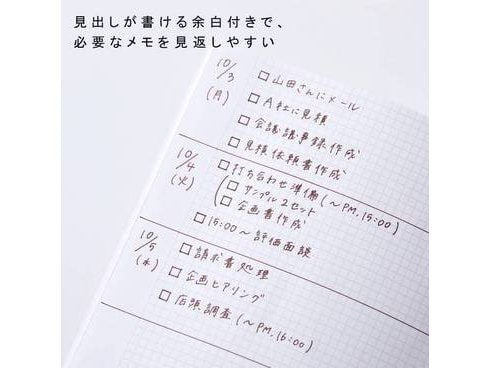 見出しが書ける余白付きで、
必要なメモを見返しやすい
10/3
(月)
□山田さんにメール
□A社に見積
□会議議事録作成
□見積依頼書作成
10/4
(火)
□打ち合わせ準備(〜PM.15:00)
□サンプル2セット
□企画書作成
□15:00〜評価面談
10/5
(水)
□請求書処理
□企画ヒアリング
□店頭調査(〜PM.16:00)